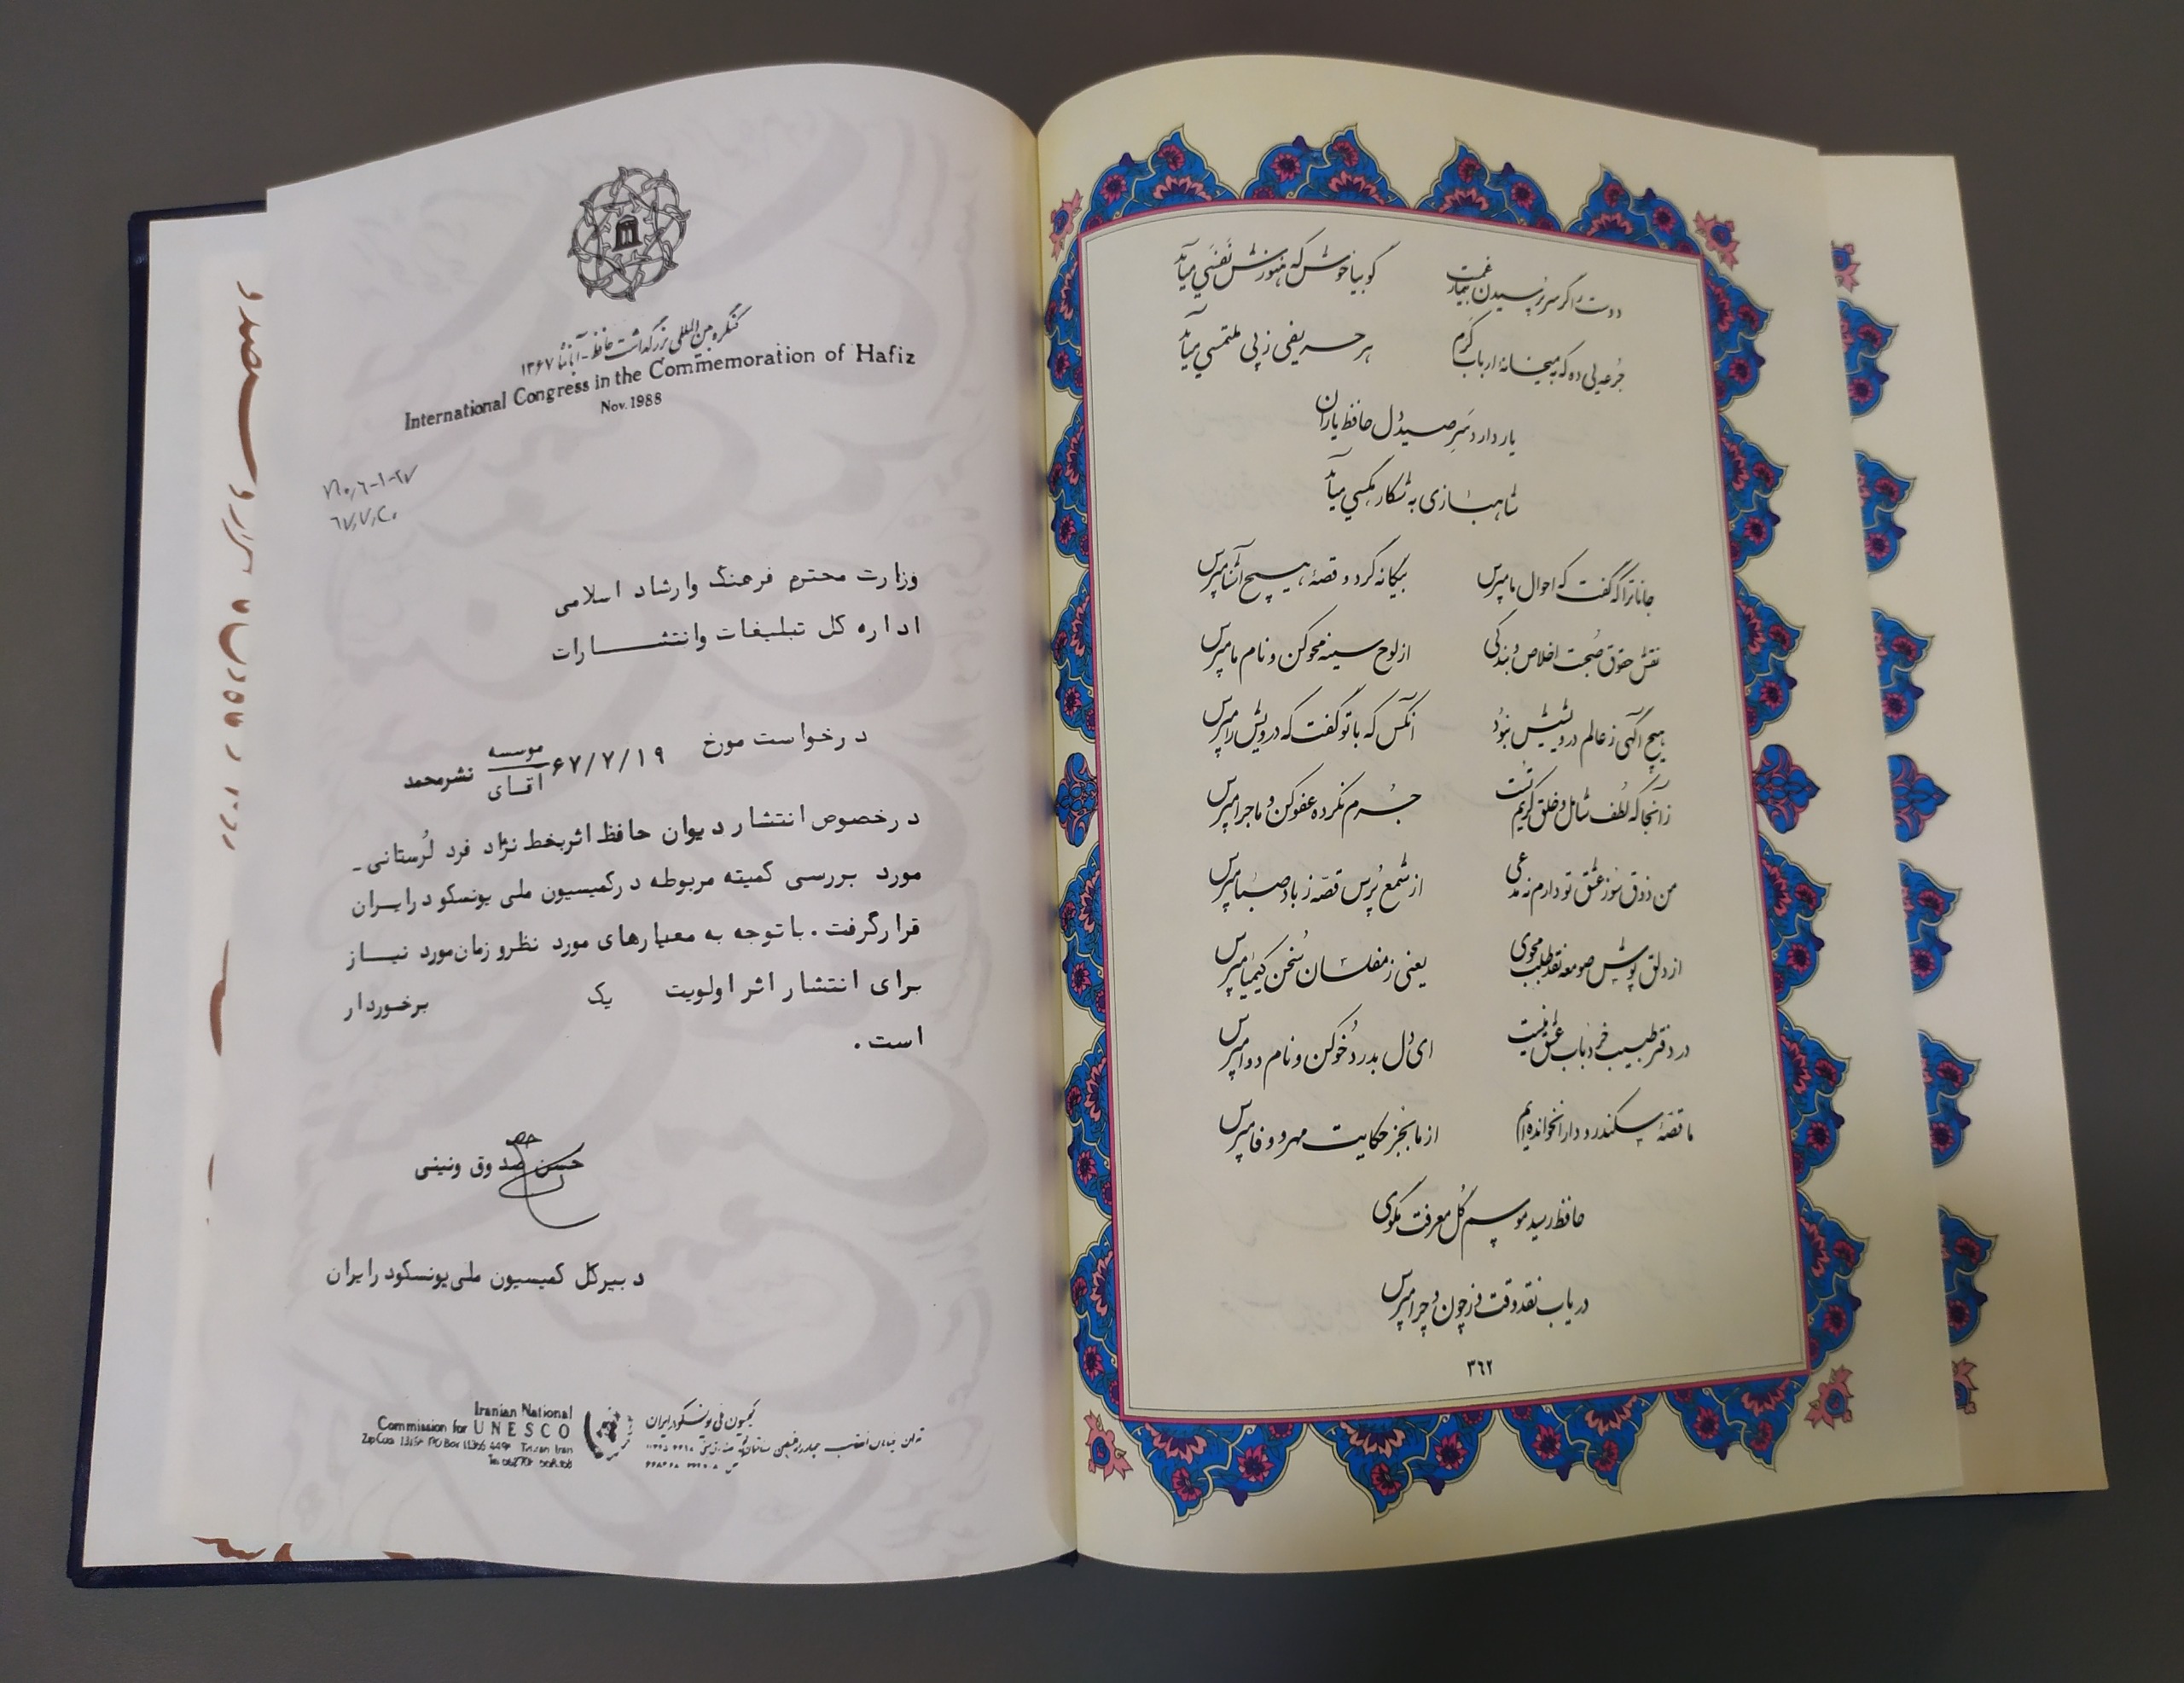 کنگره بین‌المللی بزرگداشت حافظ - آبانماه ۱۳۶۷
International Congress in the Commemoration of Hafiz
Nov. 1988
وزارت محترم فرهنگ وارشاد اسلامی
اداره کل تبلیغات وانتشارات
درخواست مورخ ۶۷/۷/۱۹ موسسه
آقای نشرمحمد
درخصوص انتشار دیوان حافظ اثربخط نژاد فرد لُرستانی -
مورد بررسی کمیته مربوطه درکمیسیون ملی یونسکو درایران
قرارگرفت . باتوجه به معیارهای مورد نظرو زمان‌مورد نیاز
برای انتشار اثر اولویت یک برخوردار
است .
حسن صدوق ونینی
دبیرکل کمیسیون ملی یونسکودرایران
Iranian National
Commission for UNESCO
کمیسیون ملی یونسکو در ایران
دوست را گر سر پرسیدن بیمار غمست گو بیا خوش که هنوزش نفسی میآید
جُرعه‌یی ده که به میخانهٔ ارباب کَرم هر حریفی ز پی ملتمسی میآید
یار دارد سَرِ صیدِ دل حافظ یاران
شاهبازی به شکار مگسی میآید
جانا ترا که گفت که احوال ما مپرس بیگانه گرد و قصهٔ هیچ آشنا مپرس
نقش حقوق صُحبت اخلاص و بندگی از لوح سینه محو کن و نام ما مپرس
هیچ آگهی ز عالم درویشیش نبود آنکس که با تو گفت که درویش را مپرس
زآنجا که لُطف شامل و خُلق کریم تست جُرم نکرده عفو کن و ماجرا مپرس
من ذوق سوز عشق تو دارم نه مدعی از شمع پُرس قصّه ز باد صبا مپرس
از دلق پوش صومعه نقد طلب مجوی یعنی ز مفلسان سُخن کیمیا مپرس
در دفتر طبیب خرد باب عشق نیست ای دل بدرد خو کن و نام دوا مپرس
ما قصّهٔ سکندر و دارا نخوانده‌ایم از ما بجز حکایت مهر و وفا مپرس
حافظ رسید موسم گُل معرفت مگوی
دریاب نقد وقت و ز چون و چرا مپرس
۳٦۲